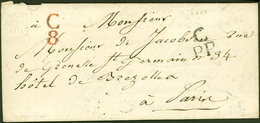 à Monsieur
C
8
Monsieur de Jacobé rue
C.
PP.
de Grenelle St Germain n° 34
hôtel de Brezolles
à Paris